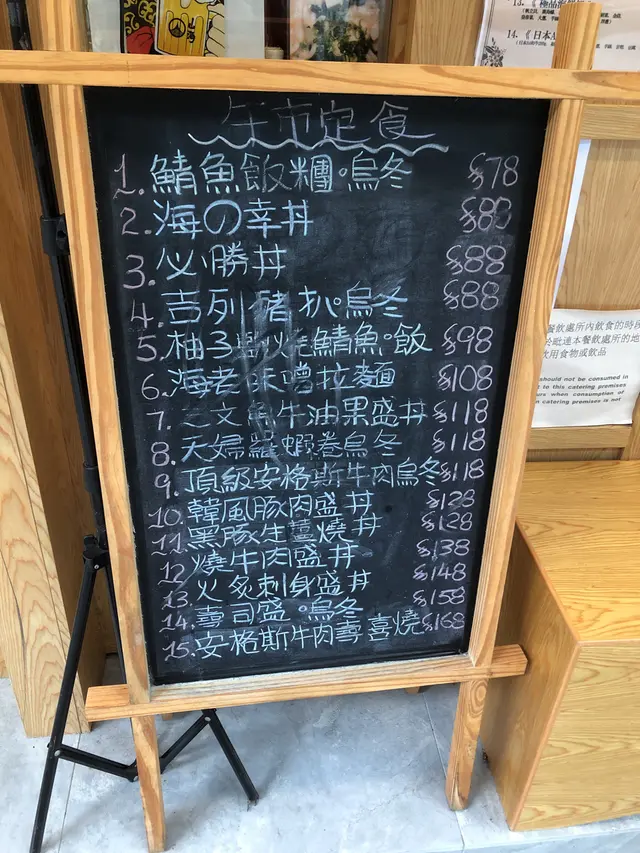 13.
14. 《日本
午市定食
1. 鯖魚飯糰。烏冬 $78
2. 海の幸丼 $88
3. 必勝丼 $88
4. 吉列豬扒。烏冬 $88
5. 柚子鹽燒鯖魚。飯 $98
6. 海老味噌拉麵 $108
7. 之文魚牛油果盛丼 $118
8. 天婦羅蝦卷烏冬 $118
9. 頂級安格斯牛肉烏冬 $118
10. 韓風豚肉盛丼 $128
11. 黑豚生薑燒丼 $128
12 燒牛肉盛丼 $138
13. 火炙刺身盛丼 $148
14. 壽司盛。烏冬 $158
15. 安格斯牛肉壽喜燒 $168
餐飲處所內飲食的時段
於毗連本餐飲處所的地
飲用食物或飲品
should not be consumed in
t to this catering premises
urs when consumption of
catering premises is not